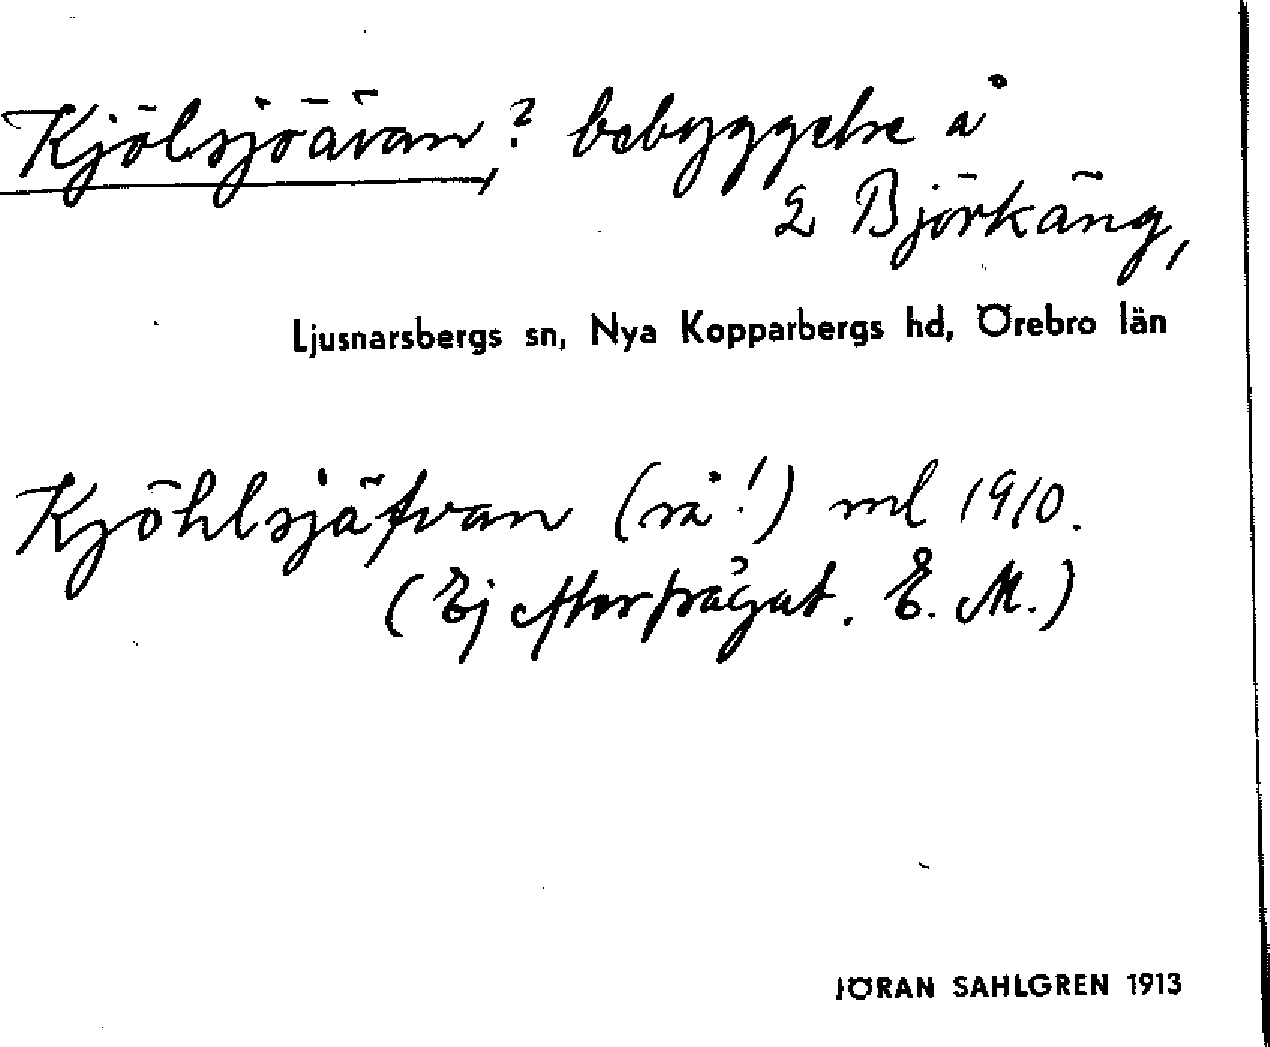 Kjölsjöävan,? bebyggelse å
2 Björkäng,
Ljusnarsbergs sn, Nya Kopparbergs hd, Örebro län
Kjöhlsjäfvan (så!) ml 1910.
(Ej efterfrågat. E. M.)
JÖRAN SAHLGREN 1913